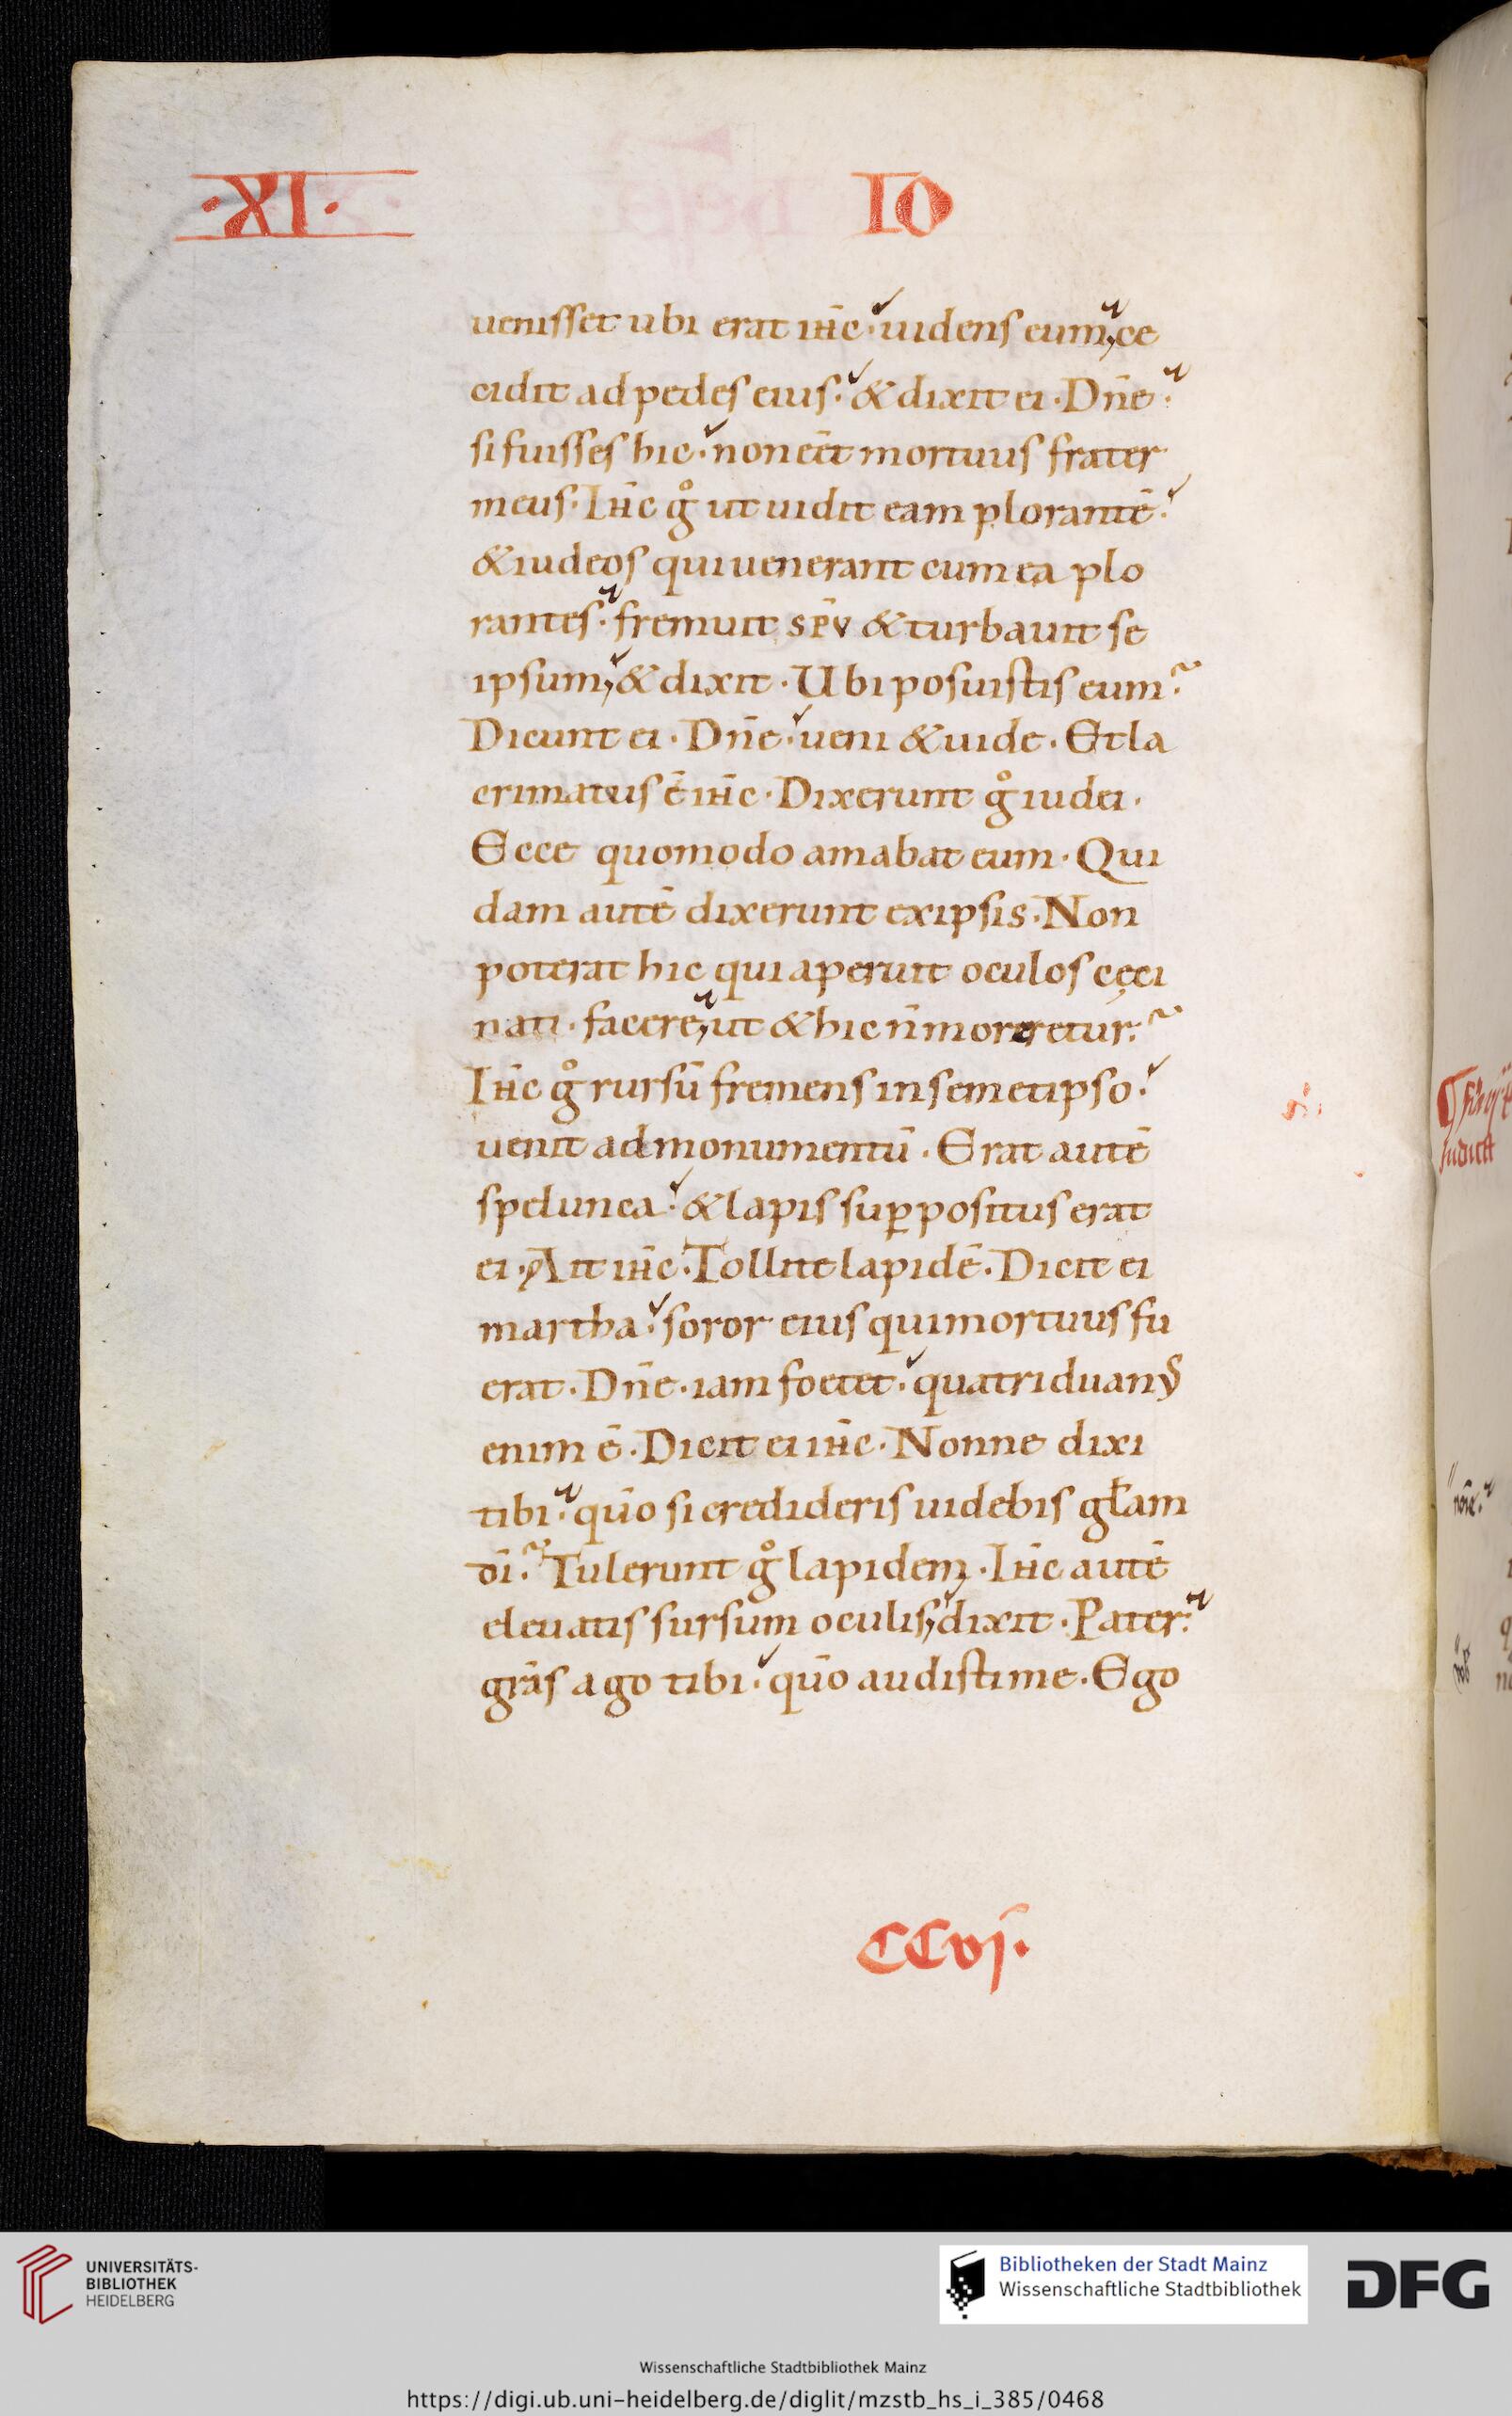 ·XI· IO
uenisset ubi erat ihc· uidens eum, ce
cidit ad pedes eius· & dixit ei· Dn̄e·
si fuisses hic· non eēt mortuus frater
meus· Ih̄c g̊ ut uidit eam plorantē·
& iudeos qui uenerant cum ea plo
rantes· fremuit sp̄v & turbauit se
ipsum, & dixit· Ubi posuistis eum?
Dicunt ei· Dn̄e· ueni & uide· Et la
crimatus ē ih̄c· Dixerunt g̊ iudei·
Ecce quomodo amabat eum· Qui
dam autē dixerunt ex ipsis· Non
poterat hic qui aperuit oculos cęci
nati· facere, ut & hic n̄ moreretur?
Ih̄c g̊ rursū fremens in semetipso·
uenit ad monumentū· Erat autē
spelunca· & lapis suꝑpositus erat
ei· Ait ih̄c· Tollite lapidē· Dicit ei
martha· soror eius qui mortuus fu
erat· Dn̄e· iam foetet· quatriduanꝰ
enim ē· Dicit ei ih̄c· Nonne dixi
tibi· qūo si credideris uidebis gl̄am
dī? Tulerunt g̊ lapidem· Ih̄c autē
eleuatis sursum oculis, dixit· Pater·
grās ago tibi· qūo audisti me· Ego
CCvj·
UNIVERSITÄTS-
BIBLIOTHEK
HEIDELBERG
Bibliotheken der Stadt Mainz
Wissenschaftliche Stadtbibliothek
DFG
Wissenschaftliche Stadtbibliothek Mainz
https://digi.ub.uni-heidelberg.de/diglit/mzstb_hs_i_385/0468